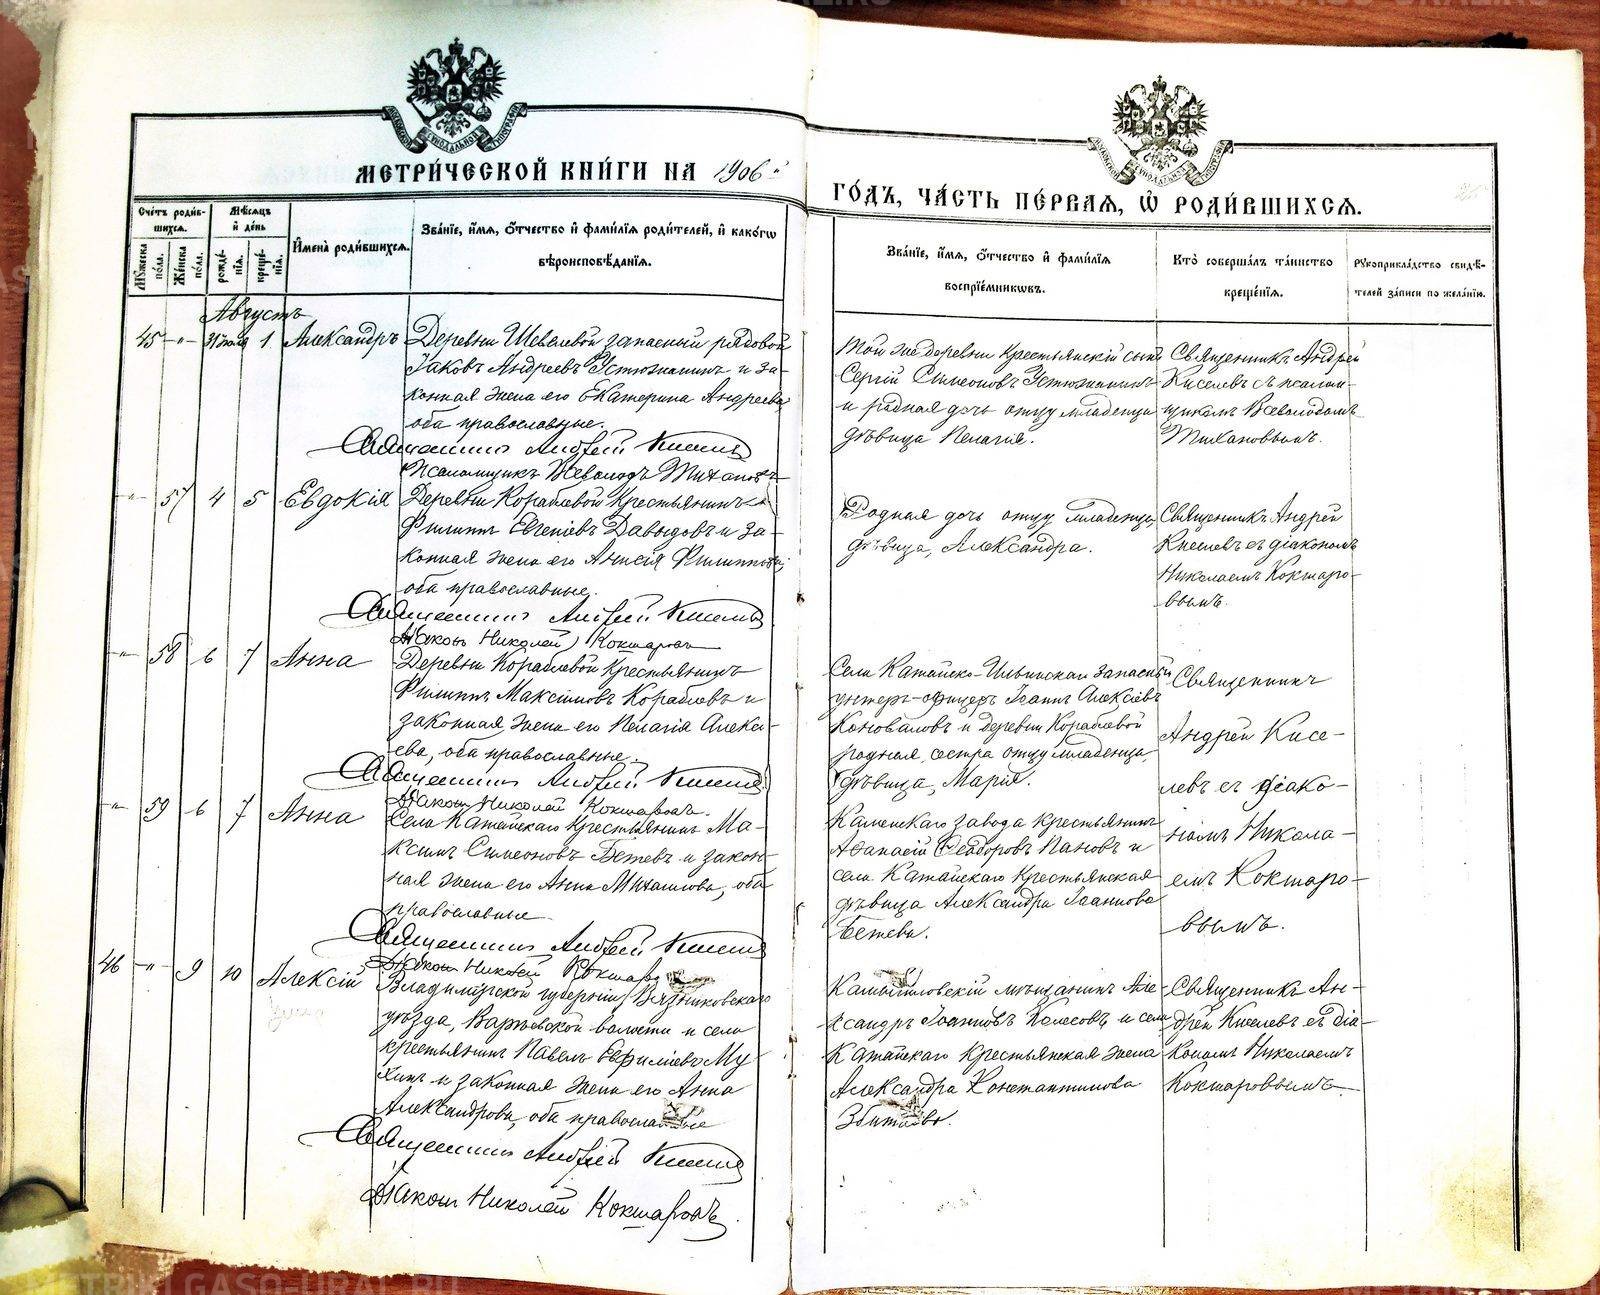 МЕТРИЧЕСКОЙ КНИГИ НА 1906й
ГОДЪ, ЧАСТЬ ПЕРВАЯ, Ѡ РОДИВШИХСЯ.
Счетъ родив-
шихся.
Мужеска пола.
Женска пола.
Мѣсяцъ
и день
рожде-
нія.
креще-
нія.
Имена родившихся.
Званіе, имя, отчество и фамилія родителей, и какогѡ
вѣроисповѣданія.
Званіе, имя, отчество и фамилія
воспріемниковъ.
Кто совершалъ таинство
крещенія.
Рукоприкладство свидѣ-
телей записи по желанію.
Августъ
45 -"- 31 июля 1 Александръ
Деревни Шевелевой запасный рядовой
Іаковъ Андреевъ Устюжанинъ и за-
конная жена его Екатерина Андреева
оба православные.
Священникъ Андрей Киселевъ
Псаломщикъ Всеволодъ Тихановъ
Той же деревни крестьянскій сынъ
Сергій Симеоновъ Устюжанинъ
и родная дочь отцу младенца
дѣвица Пелагія.
Священникъ Андрей
Киселевъ съ псалом-
щикомъ Всеволодомъ
Тихановымъ.
-"- 57 4 5 Евдокія
Деревни Кораблевой крестьянинъ
Филиппъ Евгеніевъ Давыдовъ и за-
конная жена его Анисія Филиппова,
оба православные.
Священникъ Андрей Киселевъ
Діаконъ Николай Кокшаровъ
Родная дочь отцу младенца
дѣвица, Александра.
Священникъ Андрей
Киселевъ съ діакономъ
Николаемъ Кокшаро-
вымъ.
-"- 58 6 7 Анна
Деревни Кораблевой крестьянинъ
Филиппъ Максимовъ Кораблевъ и
законная жена его Пелагія Алексѣ-
ева, оба православные.
Священникъ Андрей Киселевъ
Діаконъ Николай Кокшаровъ.
Села Катайско-Ильинскаго запасный
унтеръ-офицеръ Іоаннъ Алексѣевъ
Коноваловъ и деревни Кораблевой
родная сестра отцу младенца,
дѣвица, Марія.
Священникъ
Андрей Кисе-
левъ съ діако-
номъ Никола-
емъ Кокшаро-
вымъ.
-"- 59 6 7 Анна
Села Катайскаго крестьянинъ Ма-
ксимъ Симеоновъ Бетевъ и закон-
ная жена его Анна Михаилова, оба
православные
Священникъ Андрей Киселевъ
Діаконъ Николай Кокшаровъ
Каменскаго завода крестьянинъ
Аѳанасій Ѳеодоровъ Пановъ и
села Катайскаго крестьянская
дѣвица Александра Іоаннова
Бетева.
46 -"- 9 10 Алексій
Владимірской губерніи, Вязниковскаго
уѣзда, Варѣевской волости и села
крестьянинъ Павелъ Евфиміевъ Му-
хинъ и законная жена его Анна
Александрова, оба православные
Священникъ Андрей Киселевъ
Діаконъ Николай Кокшаровъ.
Камышловскій мѣщанинъ Але-
ксандръ Іоанновъ Колесовъ и села
Катайскаго крестьянская жена
Александра Константинова
Священникъ Ан-
дрей Киселевъ съ діа-
кономъ Николаемъ
Кокшаровымъ
METRIKI.GASO-URAL.RU